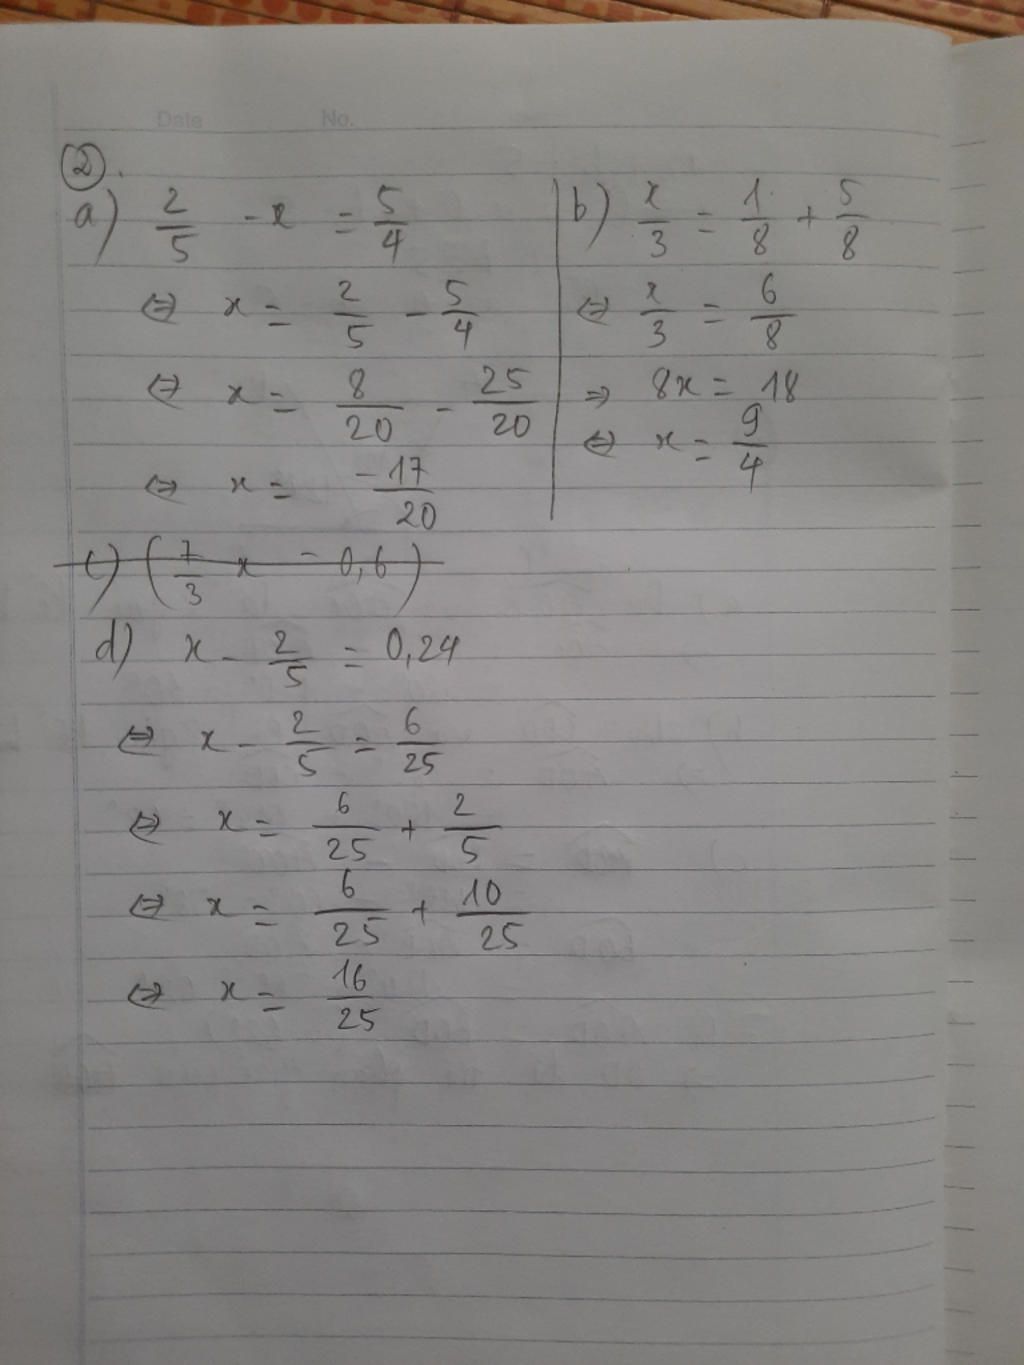 Date No.
②.
a) 2/5 - x = 5/4
⇔ x = 2/5 - 5/4
⇔ x = 8/20 - 25/20
⇔ x = -17/20
b) x/3 = 1/8 + 5/8
⇔ x/3 = 6/8
⇒ 8x = 18
⇔ x = 9/4
c) (7/3 x - 0,6)
d) x - 2/5 = 0,24
⇔ x - 2/5 = 6/25
⇔ x = 6/25 + 2/5
⇔ x = 6/25 + 10/25
⇔ x = 16/25